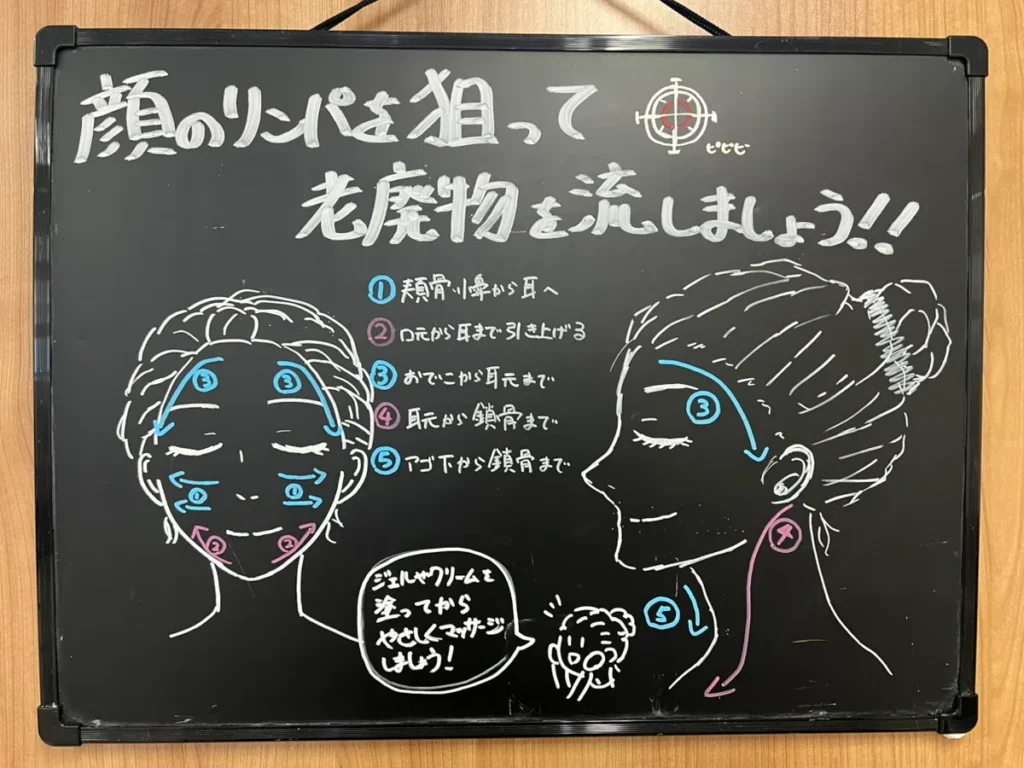 顔のリンパを狙って
ピピピ
老廃物を流しましょう!!
① 頬骨・小鼻から耳へ
② 口元から耳まで引き上げる
③ おでこから耳元まで
④ 耳元から鎖骨まで
⑤ アゴ下から鎖骨まで
③ ③
① ①
② ②
③
④
⑤
ジェルやクリームを
塗ってから
やさしくマッサージ
しましょう!